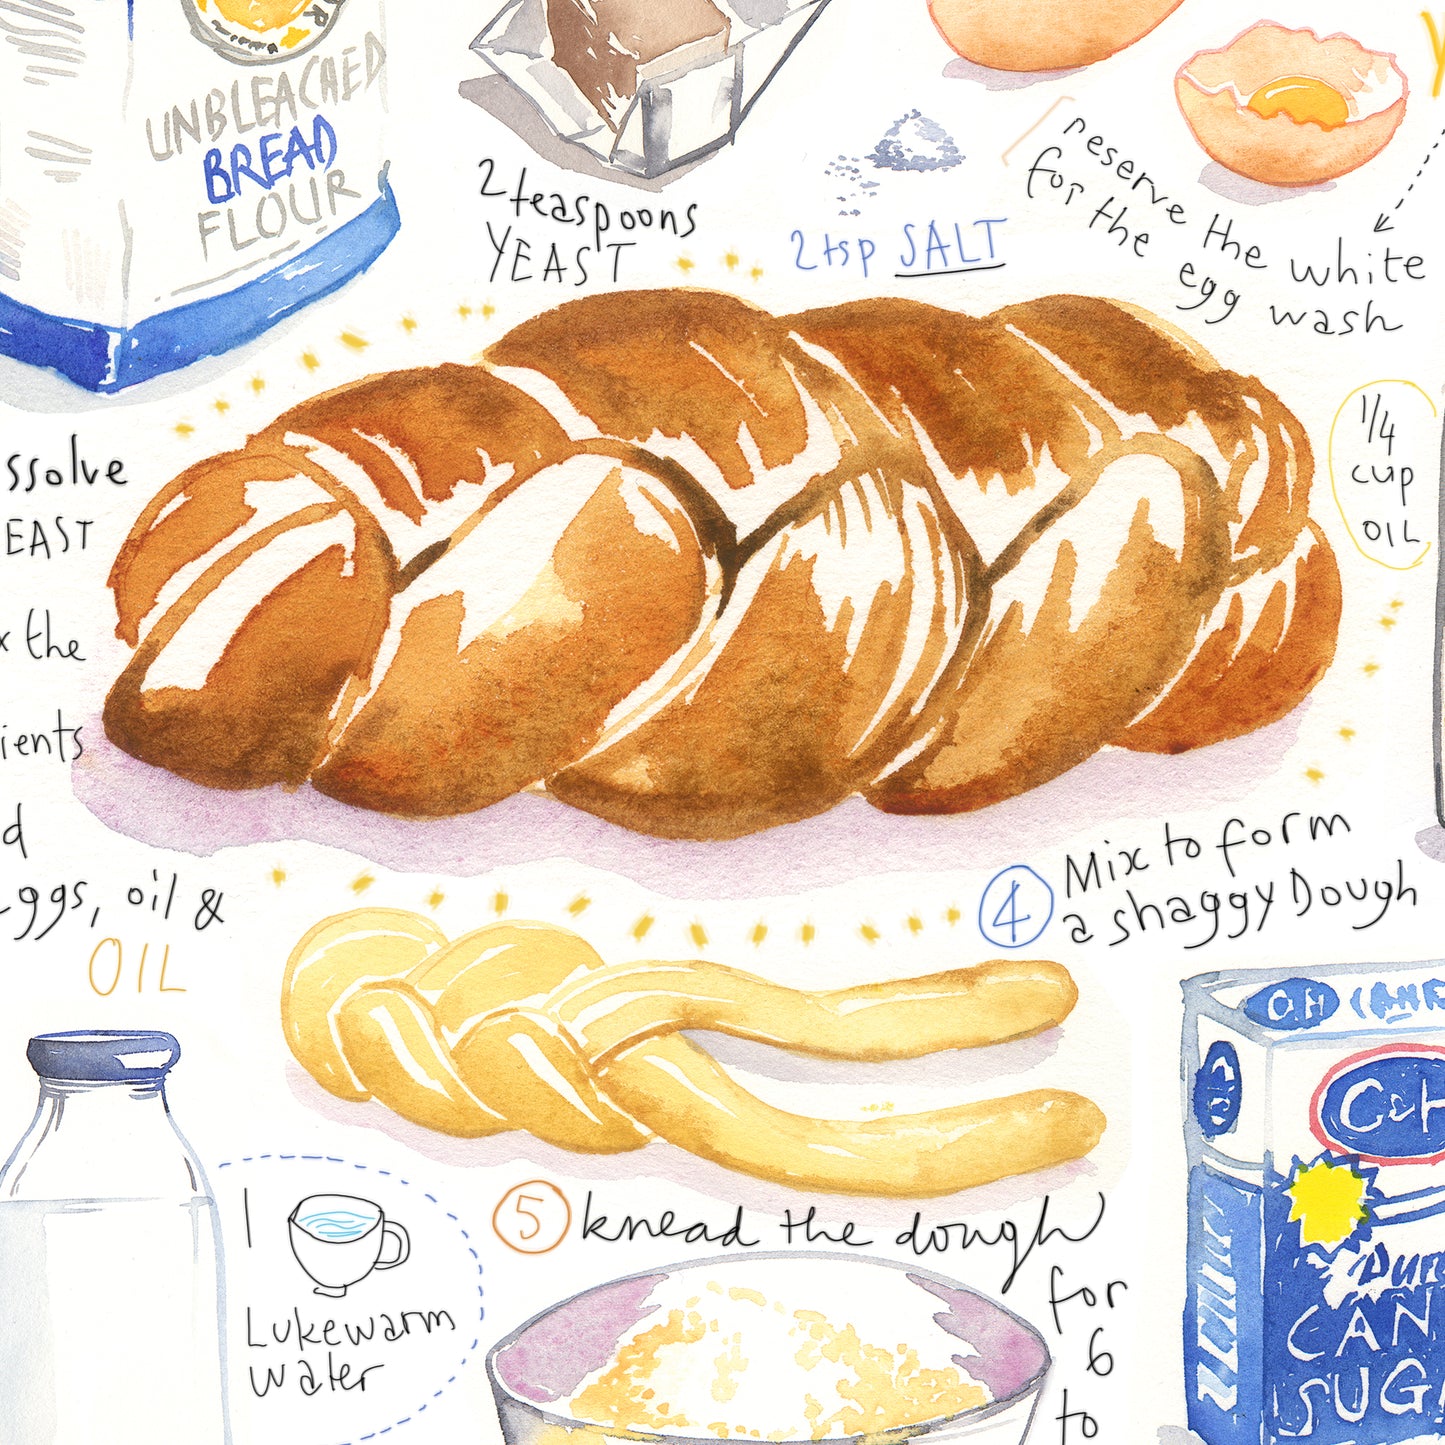 UNBLEACHED
BREAD
FLOUR
2 teaspoons
YEAST
2 tsp SALT
reserve the white
for the egg wash
1/4
cup
OIL
ssolve
EAST
x the
ients
d
eggs, oil &
OIL
4 Mix to form
a shaggy Dough
1
Lukewarm
water
5 knead the dough
for
6
to
C&H CANE
C&H
Pure
CAN
SUG